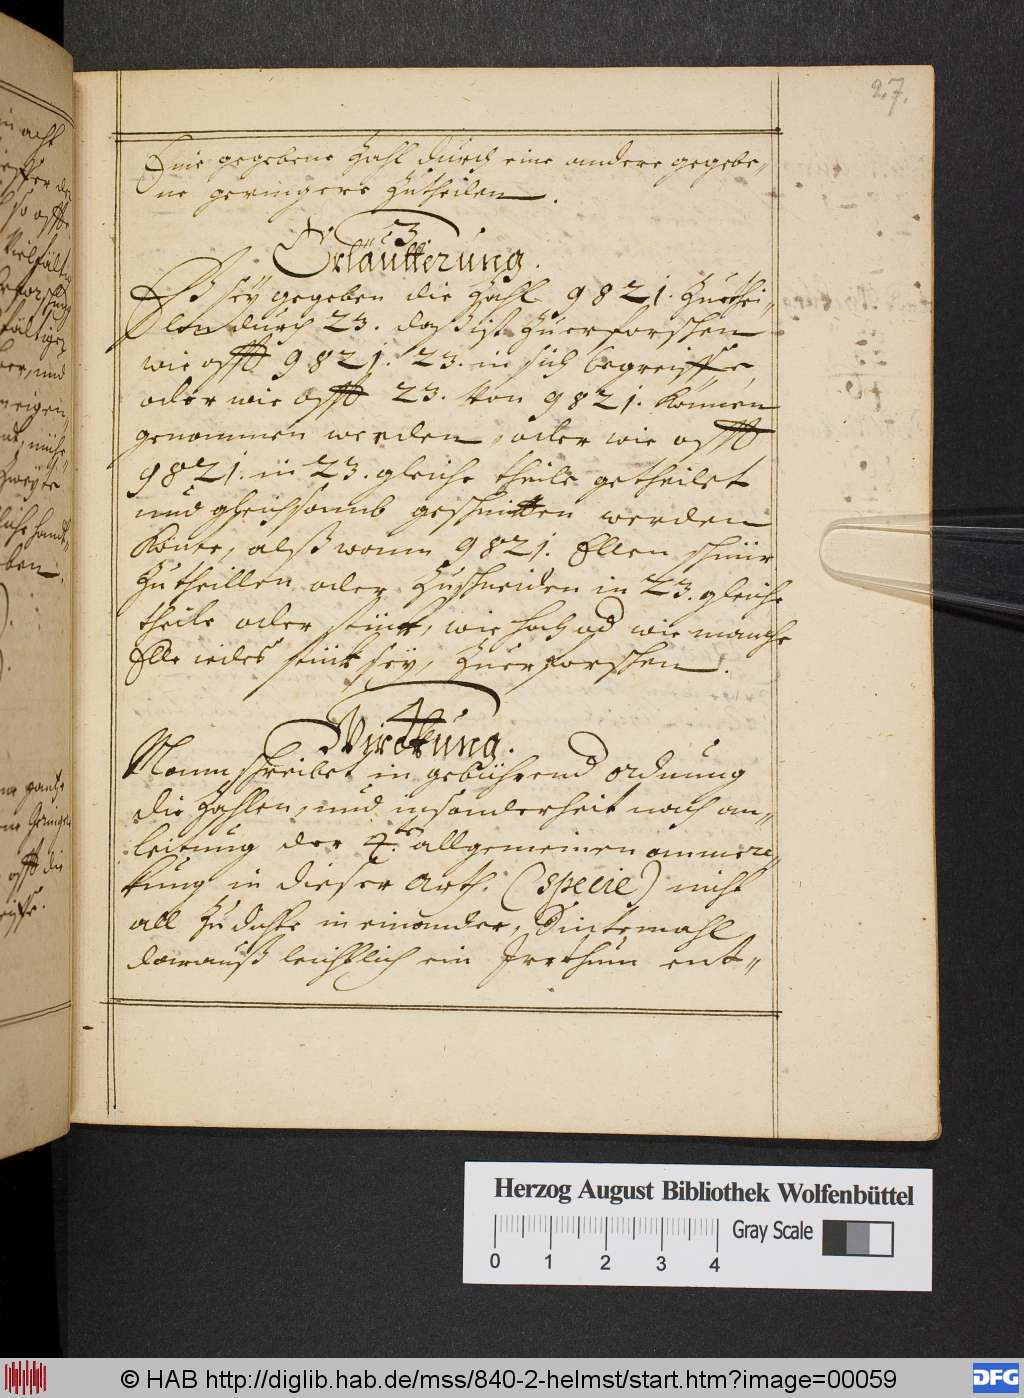 27.
Eine gegebene Zahl durch eine andere gegebe„
ne geringere Zutheilen.
3
Erläutterung.
Eß seÿ gegeben die Zahl 9821. Zuthei„
len durch 23. daß ist Zuerforschen
wie offt 9821. 23. in sich begreiffe,
oder wie offt 23. von 9821. können
genommen werden, oder wie offt
9821. in 23. gleiche theile getheilet
und gleichsamb geschnitten werden
könne, alß wann 9821. Ellen schnür
Zutheillen oder Zuschneiden in 23. gleiche
theile oder stück, wie hoch od wie manche
Elle iedes stück seÿ, Zuerforschen.
4
Wirckung.
Mann schreibet in gebührend ordnung
die Zahlen, und insonderheit nach an„
leitung der 4.ᵗ allgemeinen anmer„
kung in dieser arth. (specie) nicht
all Zu dichte in einander, Sintemahl
darauß leichtlich ein Irrthum ent„
Herzog August Bibliothek Wolfenbüttel
0 1 2 3 4
Gray Scale
© HAB http://diglib.hab.de/mss/840-2-helmst/start.htm?image=00059
DFG